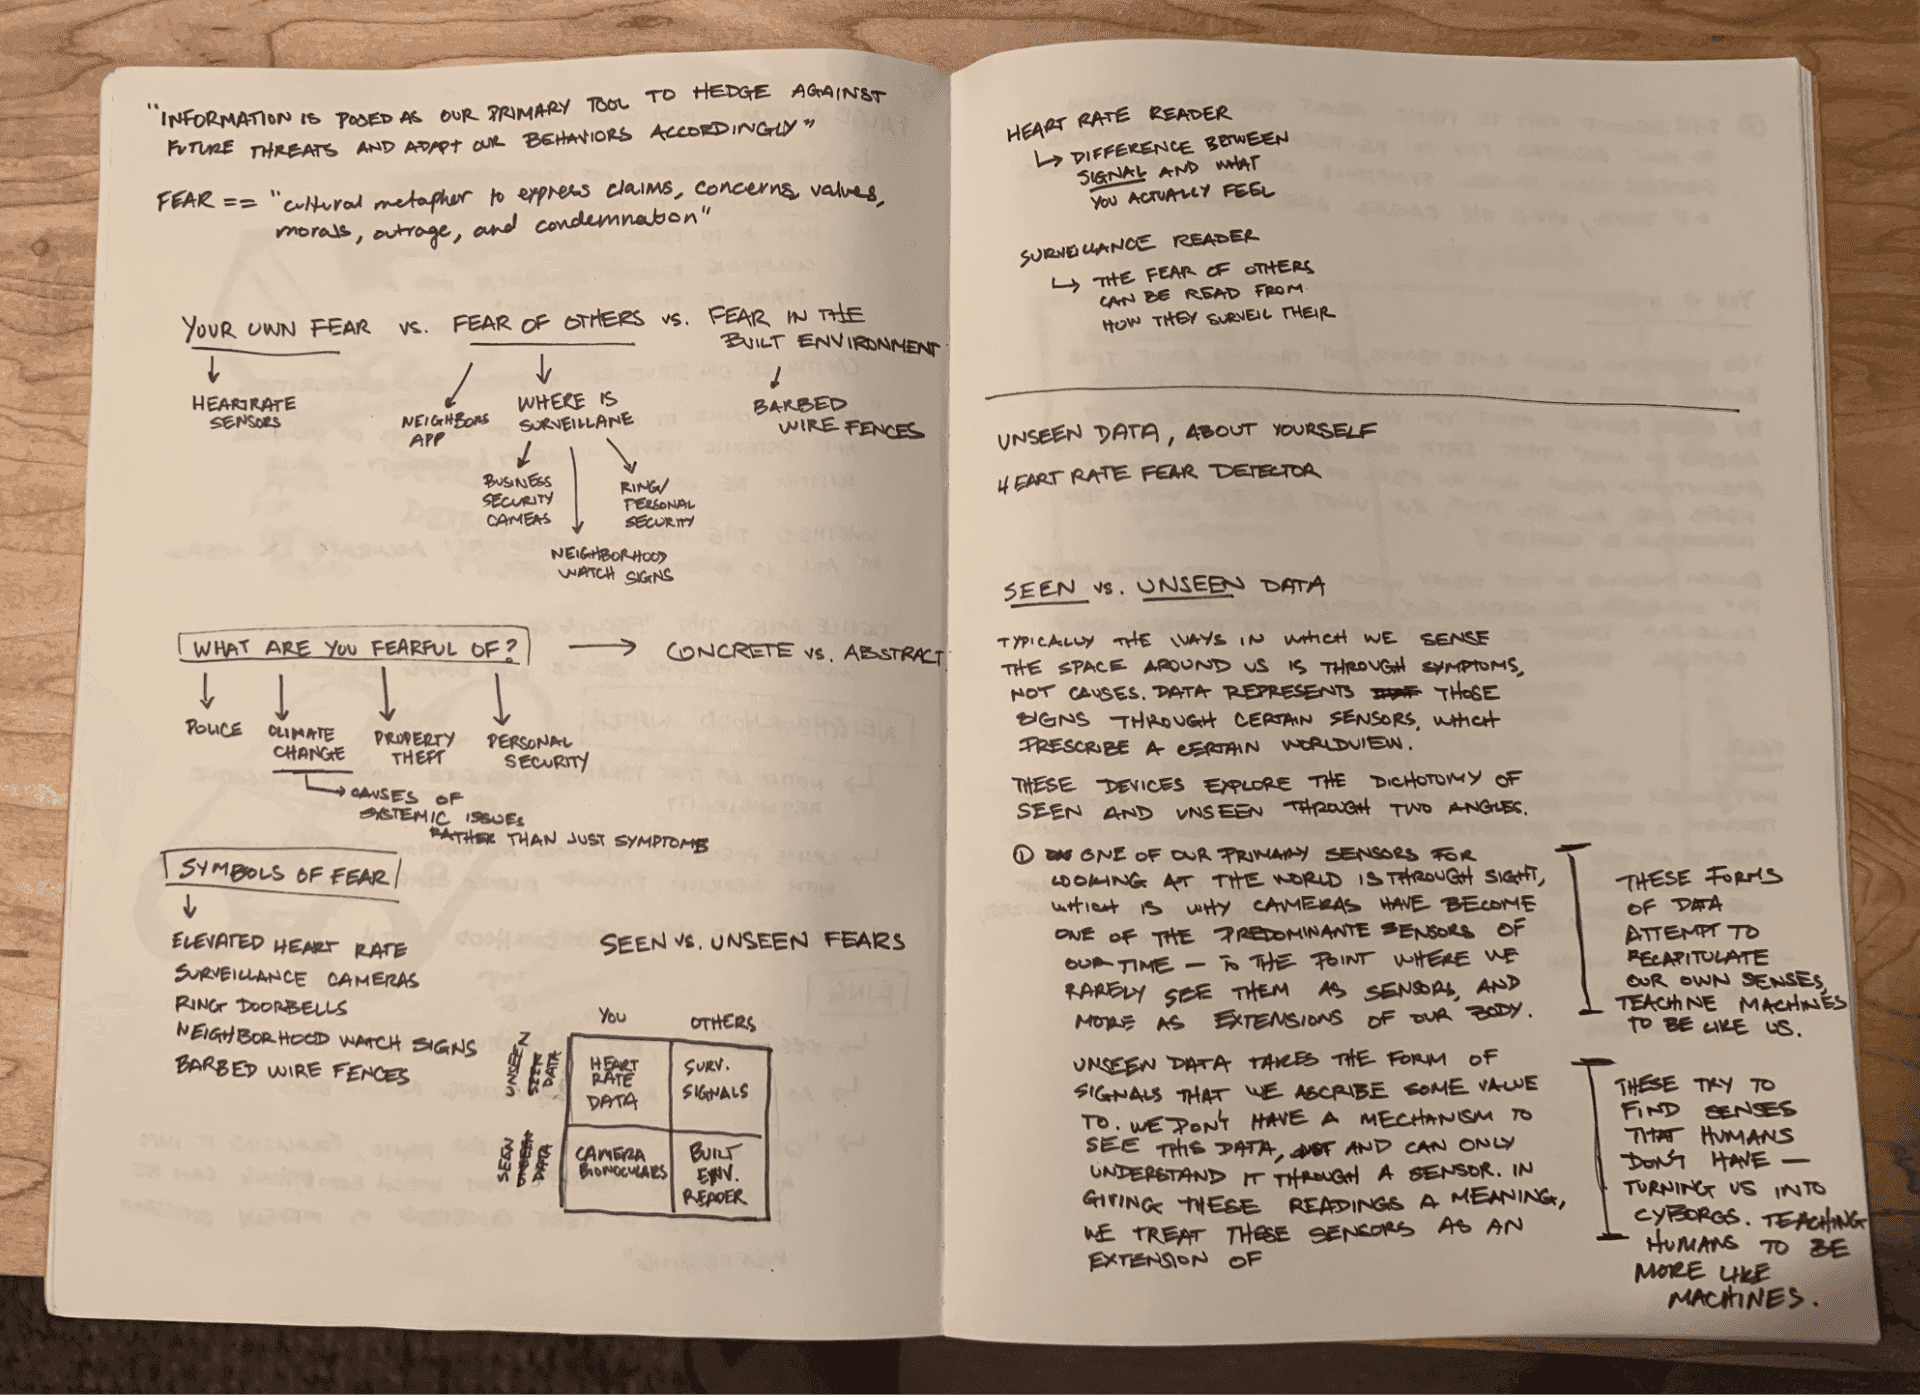 "INFORMATION IS POSED AS OUR PRIMARY TOOL TO HEDGE AGAINST
FUTURE THREATS AND ADAPT OUR BEHAVIORS ACCORDINGLY"
FEAR == "cultural metapher to express claims, concerns, values,
morals, outrage, and condemnation"
YOUR OWN FEAR vs. FEAR OF OTHERS vs. FEAR IN THE
BUILT ENVIRONMENT
HEARTRATE
SENSORS
NEIGHBORS
APP
WHERE IS
SURVEILLANE
BARBED
WIRE FENCES
BUSINESS
SECURITY
CAMEAS
RING/
PERSONAL
SECURITY
NEIGHBORHOOD
WATCH SIGNS
WHAT ARE YOU FEARFUL OF? → CONCRETE vs. ABSTRACT
POLICE
CLIMATE
CHANGE
PROPERTY
THEFT
PERSONAL
SECURITY
CAUSES OF
SYSTEMIC ISSUES
RATHER THAN JUST SYMPTOMS
SYMBOLS OF FEAR
ELEVATED HEART RATE
SURVEILLANCE CAMERAS
RING DOORBELLS
NEIGHBORHOOD WATCH SIGNS
BARBED WIRE FENCES
SEEN vs. UNSEEN FEARS
YOU OTHERS
UNSEEN
SEEN
DATA
HEART
RATE
DATA
SURV.
SIGNALS
SEEN
UNSEEN
DATA
CAMERA
BIONOCULARS
BUILT
ENV.
READER
HEART RATE READER
↳ DIFFERENCE BETWEEN
SIGNAL AND WHAT
YOU ACTUALLY FEEL
SURVEILLANCE READER
↳ THE FEAR OF OTHERS
CAN BE READ FROM
HOW THEY SURVEIL THEIR
UNSEEN DATA, ABOUT YOURSELF
HEART RATE FEAR DETECTOR
SEEN vs. UNSEEN DATA
TYPICALLY THE WAYS IN WHICH WE SENSE
THE SPACE AROUND US IS THROUGH SYMPTOMS,
NOT CAUSES. DATA REPRESENTS THOSE
SIGNS THROUGH CERTAIN SENSORS, WHICH
PRESCRIBE A CERTAIN WORLDVIEW.
THESE DEVICES EXPLORE THE DICHOTOMY OF
SEEN AND UNSEEN THROUGH TWO ANGLES.
① ONE OF OUR PRIMARY SENSORS FOR
LOOKING AT THE WORLD IS THROUGH SIGHT,
WHICH IS WHY CAMERAS HAVE BECOME
ONE OF THE PREDOMINANTE SENSORS OF
OUR TIME — TO THE POINT WHERE WE
RARELY SEE THEM AS SENSORS, AND
MORE AS EXTENSIONS OF OUR BODY.
THESE FORMS
OF DATA
ATTEMPT TO
RECAPITULATE
OUR OWN SENSES,
TEACHINE MACHINES
TO BE LIKE US.
UNSEEN DATA TAKES THE FORM OF
SIGNALS THAT WE ASCRIBE SOME VALUE
TO. WE DON'T HAVE A MECHANISM TO
SEE THIS DATA, AND CAN ONLY
UNDERSTAND IT THROUGH A SENSOR. IN
GIVING THESE READINGS A MEANING,
WE TREAT THESE SENSORS AS AN
EXTENSION OF
THESE TRY TO
FIND SENSES
THAT HUMANS
DON'T HAVE —
TURNING US INTO
CYBORGS. TEACHING
HUMANS TO BE
MORE LIKE
MACHINES.